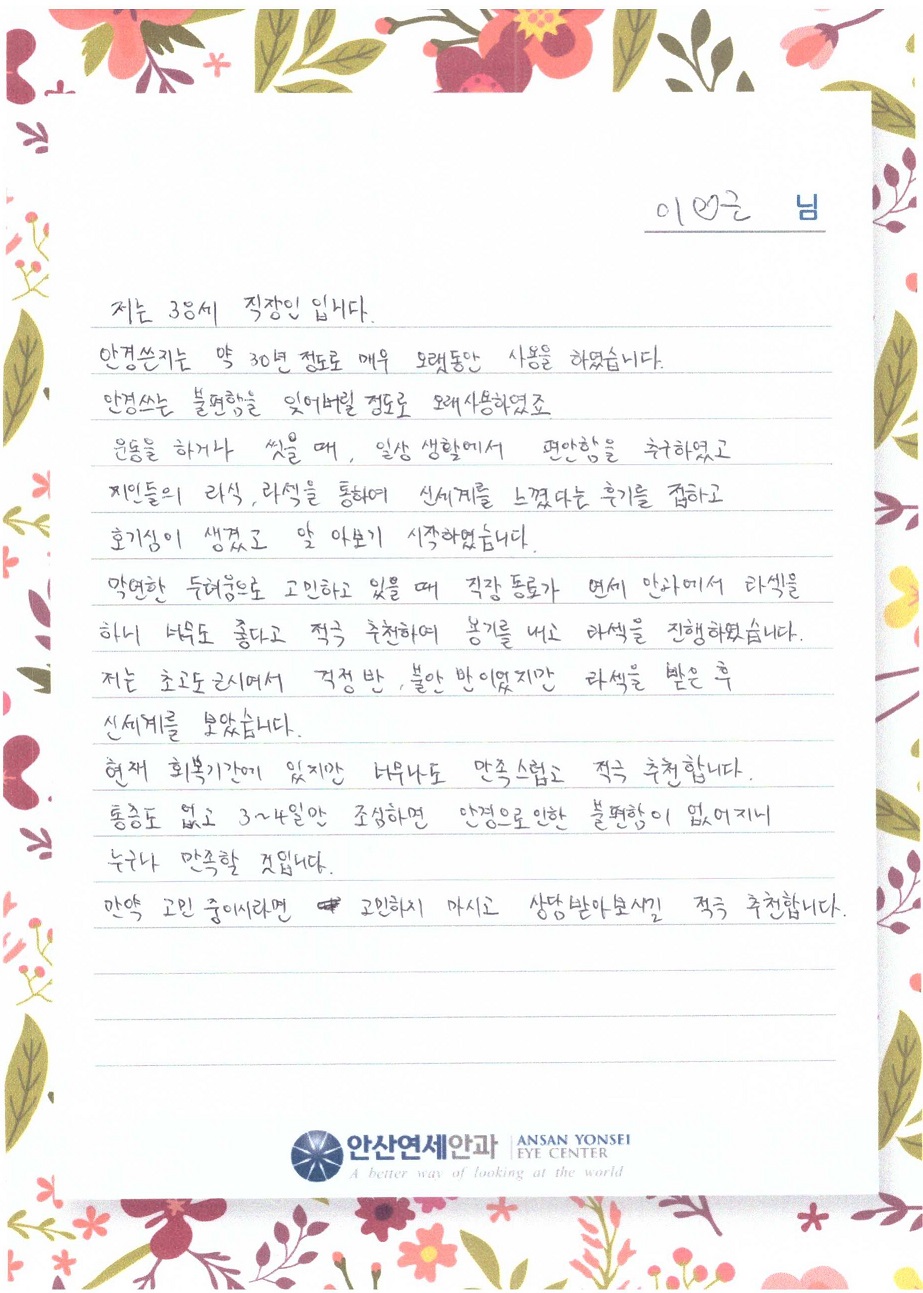 이♡근 님
저는 38세 직장인 입니다.
안경쓴지는 약 30년 정도로 매우 오랫동안 사용을 하였습니다.
안경쓰는 불편함을 잊어버릴 정도로 오래사용하였죠
운동을 하거나 씻을 때, 일상 생활에서 편안함을 추구하였고
지인들의 라식, 라섹을 통하여 신세계를 느꼈다는 후기를 접하고
호기심이 생겼고 알 아보기 시작하였습니다.
막연한 두려움으로 고민하고 있을 때 직장 동료가 연세 안과에서 라섹을
하니 너무도 좋다고 적극 추천하여 용기를 내고 라섹을 진행하였습니다.
저는 초고도 근시여서 걱정 반, 불안 반이었지만 라섹을 받은 후
신세계를 보았습니다.
현재 회복기간에 있지만 너무나도 만족스럽고 적극 추천합니다.
통증도 없고 3~4일만 조심하면 안경으로인한 불편함이 없어지니
누구나 만족할 것입니다.
만약 고민 중이시라면 고민하지 마시고 상담받아보시길 적극 추천합니다.
안산연세안과 ANSAN YONSEI EYE CENTER
A better way of looking at the world